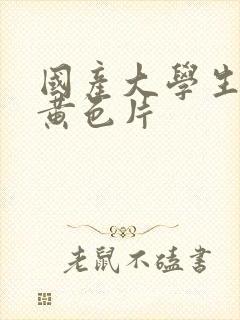 國產大學生
黄色片
老鼠不嗑書